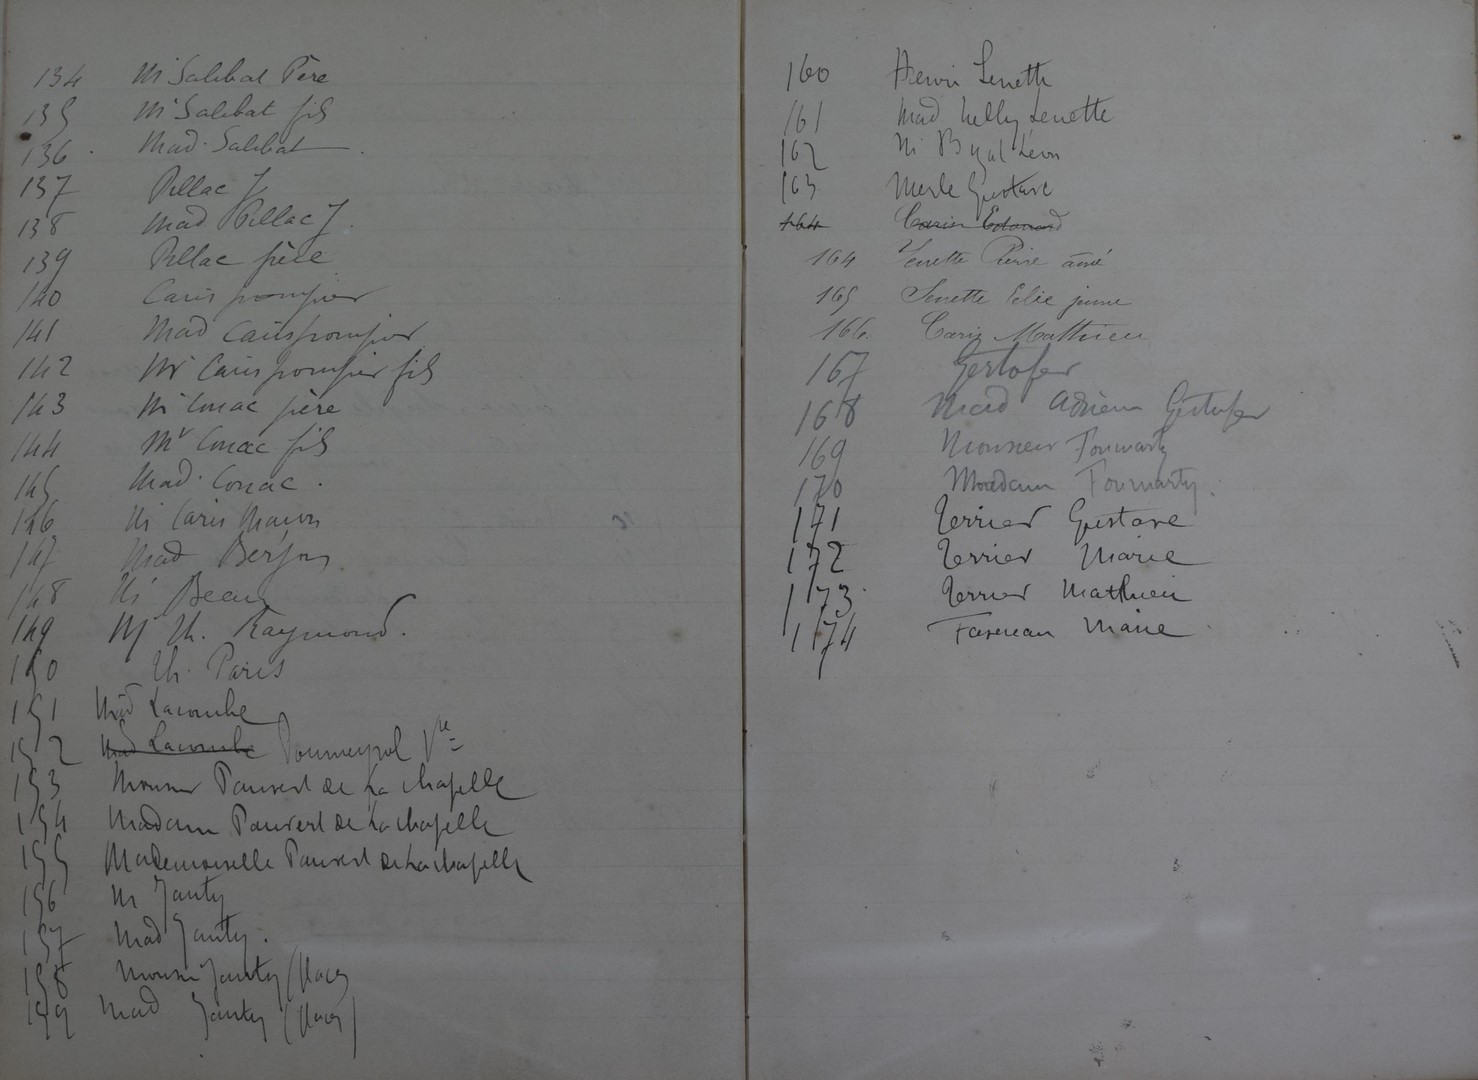 134 Mr Salibat Père
135 Mr Salibat fils
136 Mad. Salibat
137 Pillac J
138 Mad Pillac J.
139 Pillac père
140 Caris pompier
141 Mad Caris pompier
142 Mr Caris pompier fils
143 Mr Conac père
144 Mr Conac fils
145 Mad. Conac.
146 Mr Caris
147 Mad Berjon
148 Mr Beau
149 Mr Th. Raymond.
150 Th. Paris
151 Mad Lacombe
152 Mad Lacombe Poumeyrol Vve
153 Monsieur Pauvert de La Chapelle
154 Madame Pauvert de La Chapelle
155 Mademoiselle Pauvert de La Chapelle
156 Mr Janty
157 Mad Janty.
158 Monsr Janty
159 Mad Janty
160 Henri Senette
161 Mad Nelly Senette
162 Mr Léon
163 Merle Gustave
164 Caris Edouard
164 Senette Pierre aîné
165 Senette Elie jeune
166. Caris Mathieu
167 Gertofer
168 Mad Adrien Gertofer
169 Monsieur Foumarty
170 Madame Foumarty.
171 Terrier Gustave
172 Terrier Marie
173 Terrier Mathieu
174 Marie